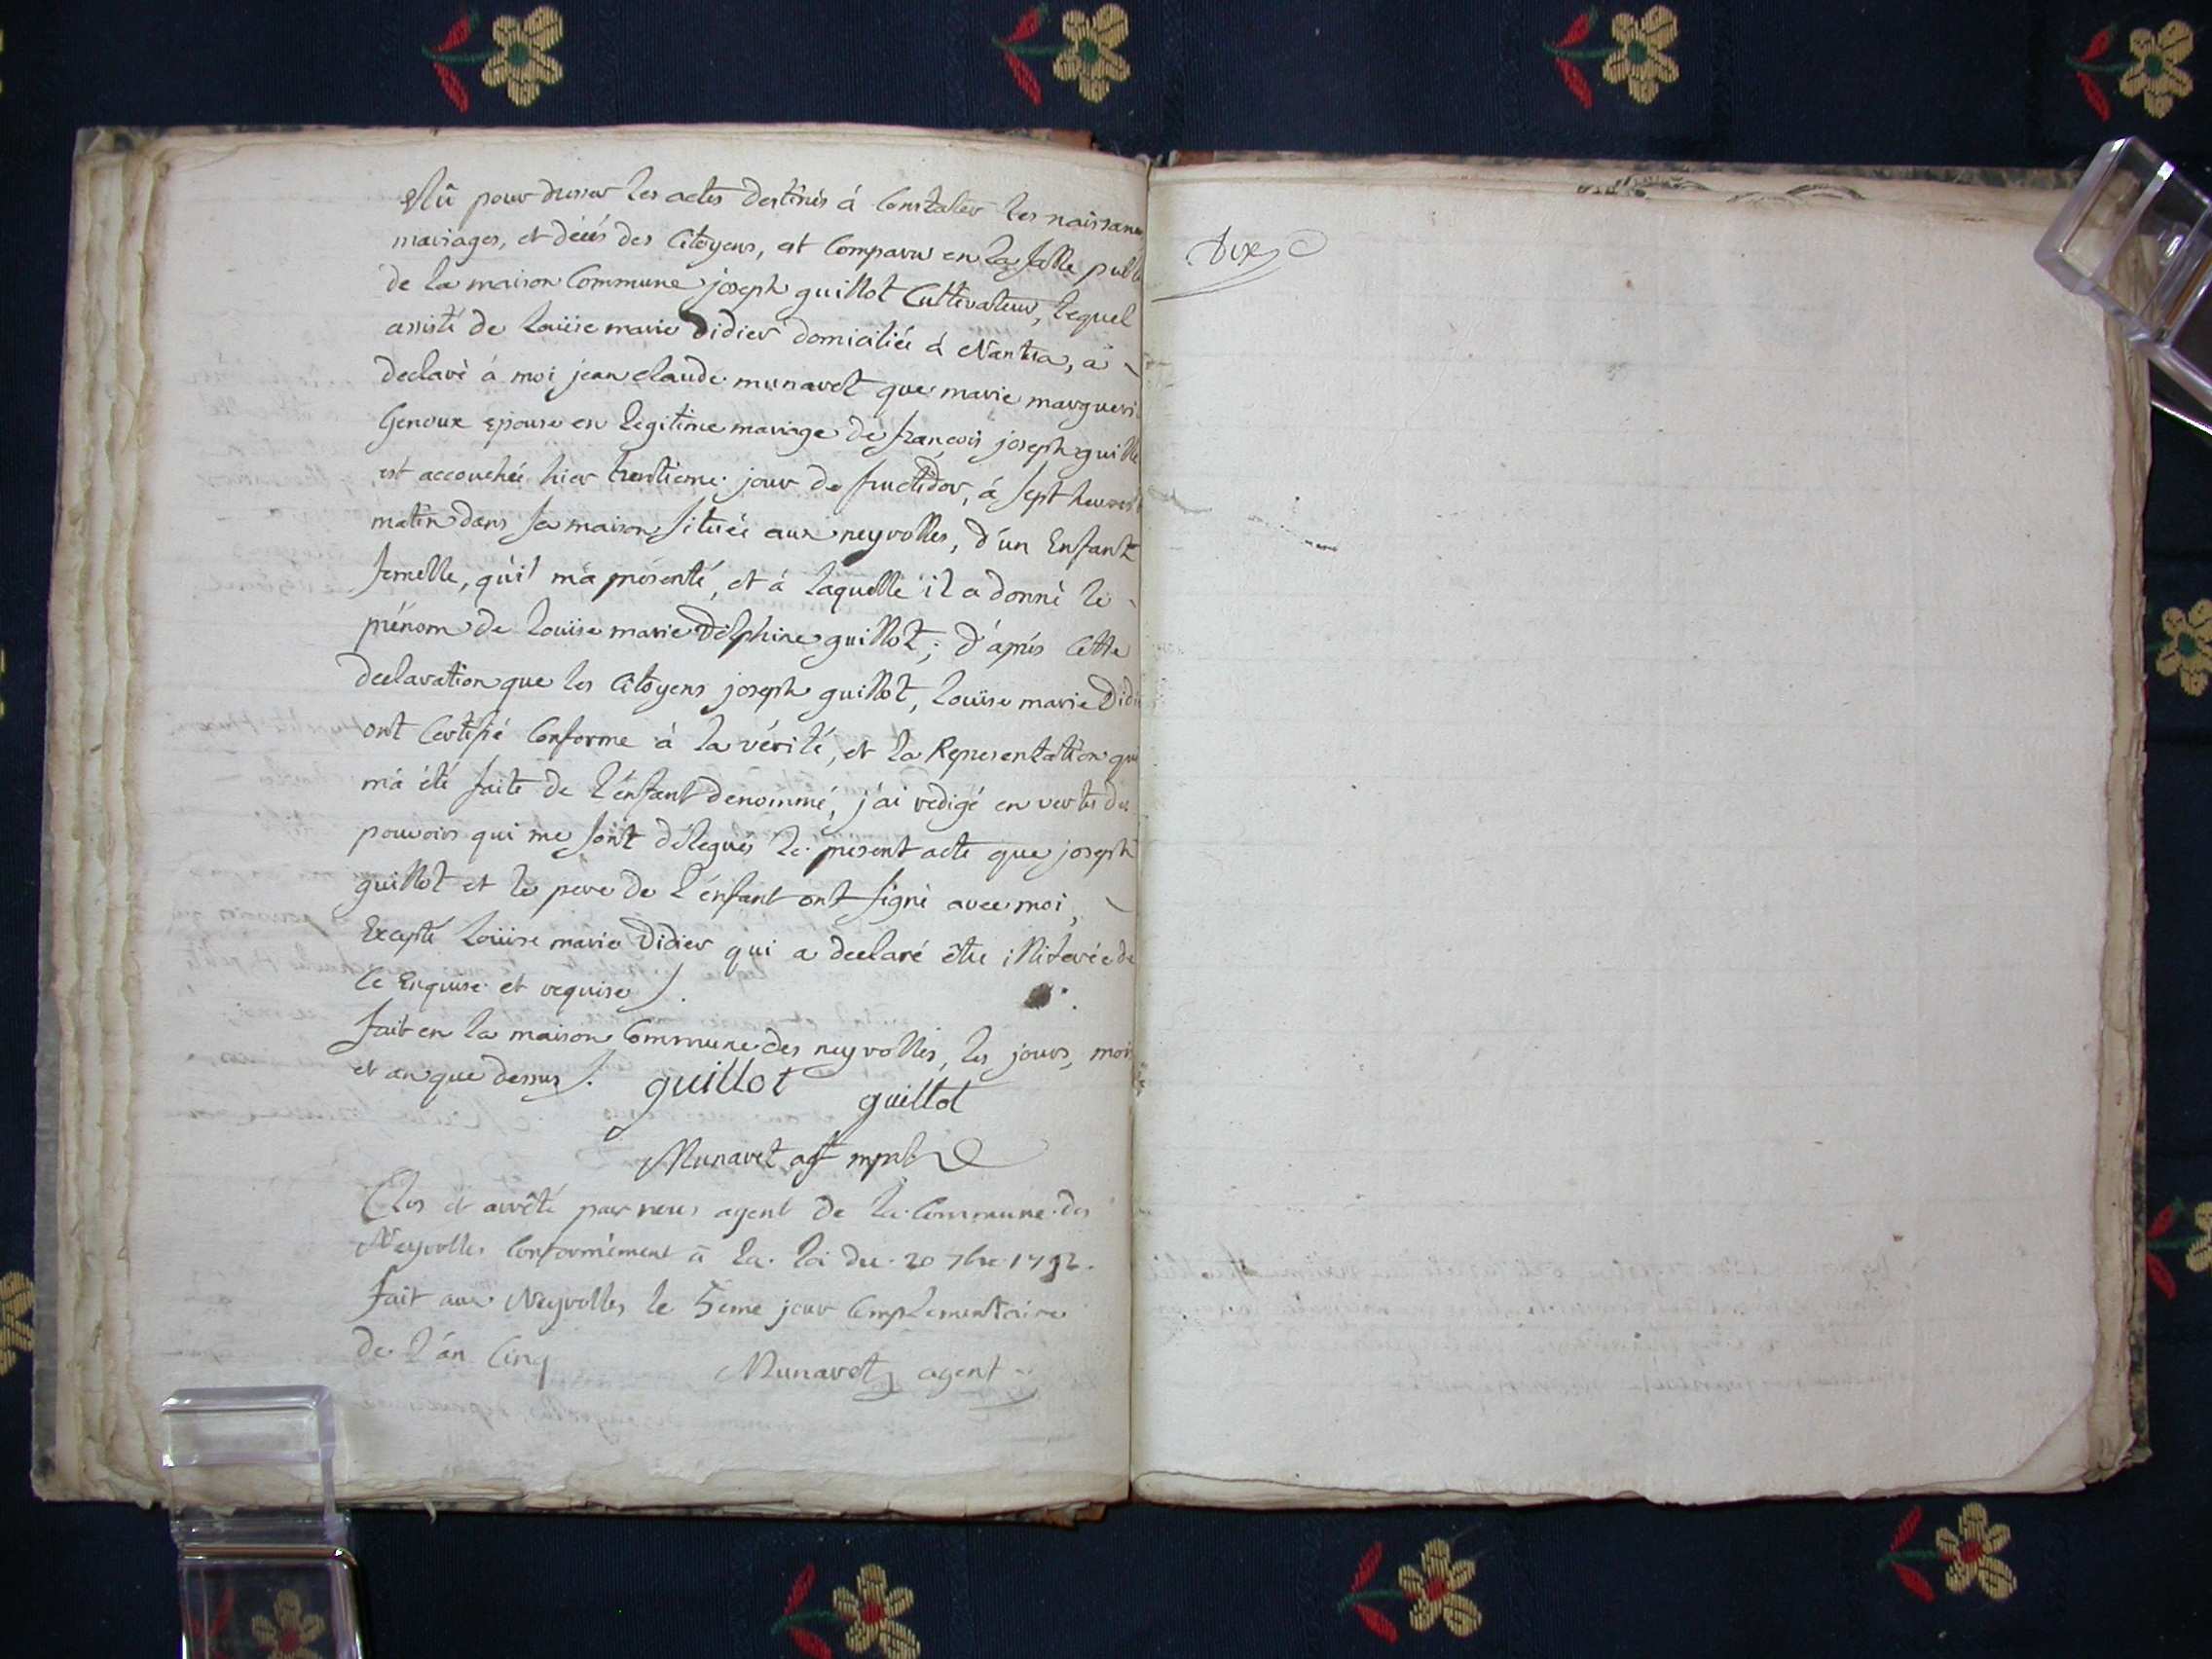 Elû pour dresser les actes destinés á Constater les naissan
mariages, et décés des Citoyens, est Comparu en la salle publi
de la maison Commune joseph guillot Cultivateur, lequel
assisté de loüise marie Didier domiciliée á Nantua, a
declaré á moi jean claude munavet que marie margueri
Genoux epouse en legitime mariage de françois joseph guillo
est accouchée hier trentieme jour de fructidor, á sept heures
matin dans sa maison située aux neyrolles, d'un Enfant
femelle, qu'il m'a présenté, et á laquelle il a donné le
prénom de loüise marie Delphine guillot; d'aprés Cette
declaration que les Citoyens joseph guillot, loüise marie Didi
ont Certifié Conforme à la vérité, et la Representation qui
m'a été faite de l'enfant denommé, j'ai redigé en vertu des
pouvoirs qui me sont délegués le présent acte que joseph
guillot et le pere de l'enfant ont signé avec moi,
Excepté loüise marie Didier qui a declaré être illiterée de
Ce Enquise et requise /.
fait en la maison Commune des neyrolles, les jours, mois
et an que dessus /. guillot
guillot
Munavet agt mpal
Clos et arrêté par nous agent de la Commune des
Neyrolles Conformément à la loi du 20 7bre 1792.
fait aux Neyrolles le 5eme jour Complementaire
de l'an Cinq
Munavet agent
dix